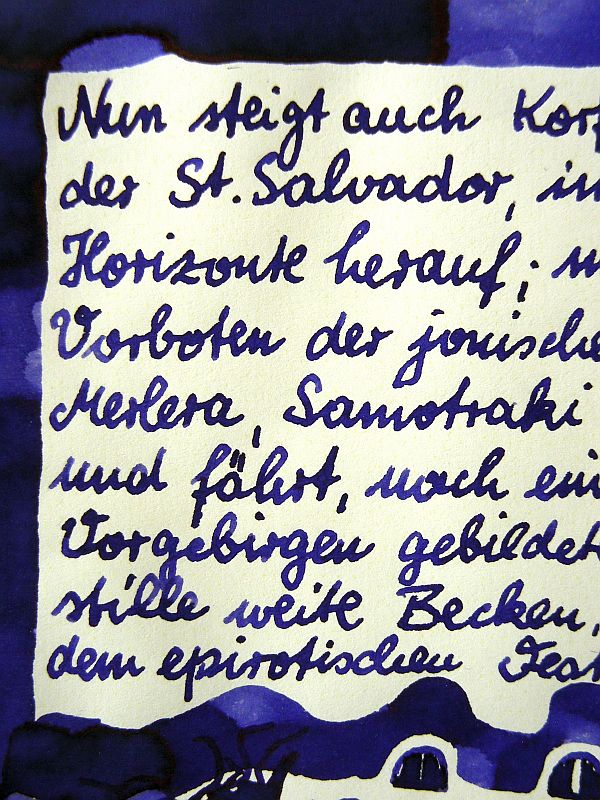 Nun steigt auch Korf
der St. Salvador, in
Horizonte herauf; m
Vorboten der jonische
Merlera, Samotraki
und fährt, nach ein
Vorgebirgen gebildete
stille weite Becken,
dem epirotischen Fest